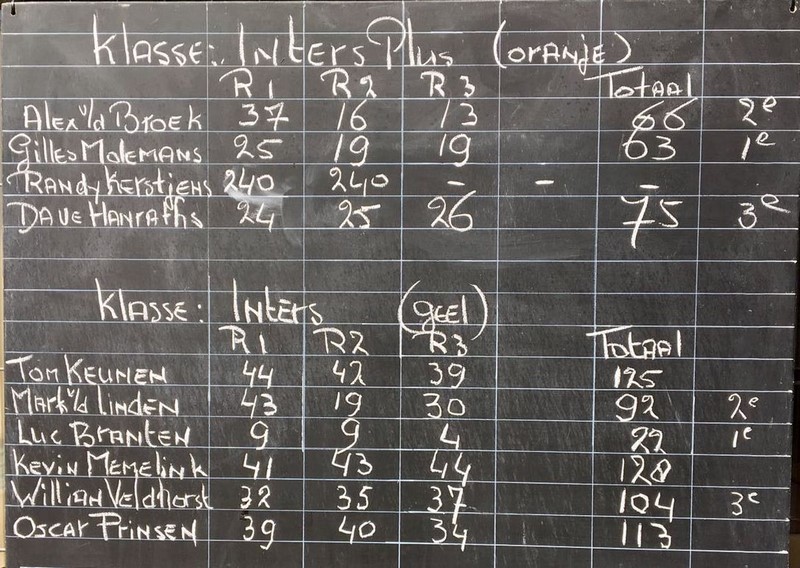 Klasse: Inters Plus (oranje)
R1 R2 R3 Totaal
Alex v/d Broek 37 16 13 66 2e
Gilles Molemans 25 19 19 63 1e
Randy Kerstjens 240 240 - - -
Dave Hanraths 24 25 26 75 3e
Klasse: Inters (geel)
R1 R2 R3 Totaal
Tom Keunen 44 42 39 125
Mark v/d Linden 43 19 30 92 2e
Luc Branten 9 9 4 22 1e
Kevin Memelink 41 43 44 128
Willian Veldhorst 32 35 37 104 3e
Oscar Prinsen 39 40 34 113